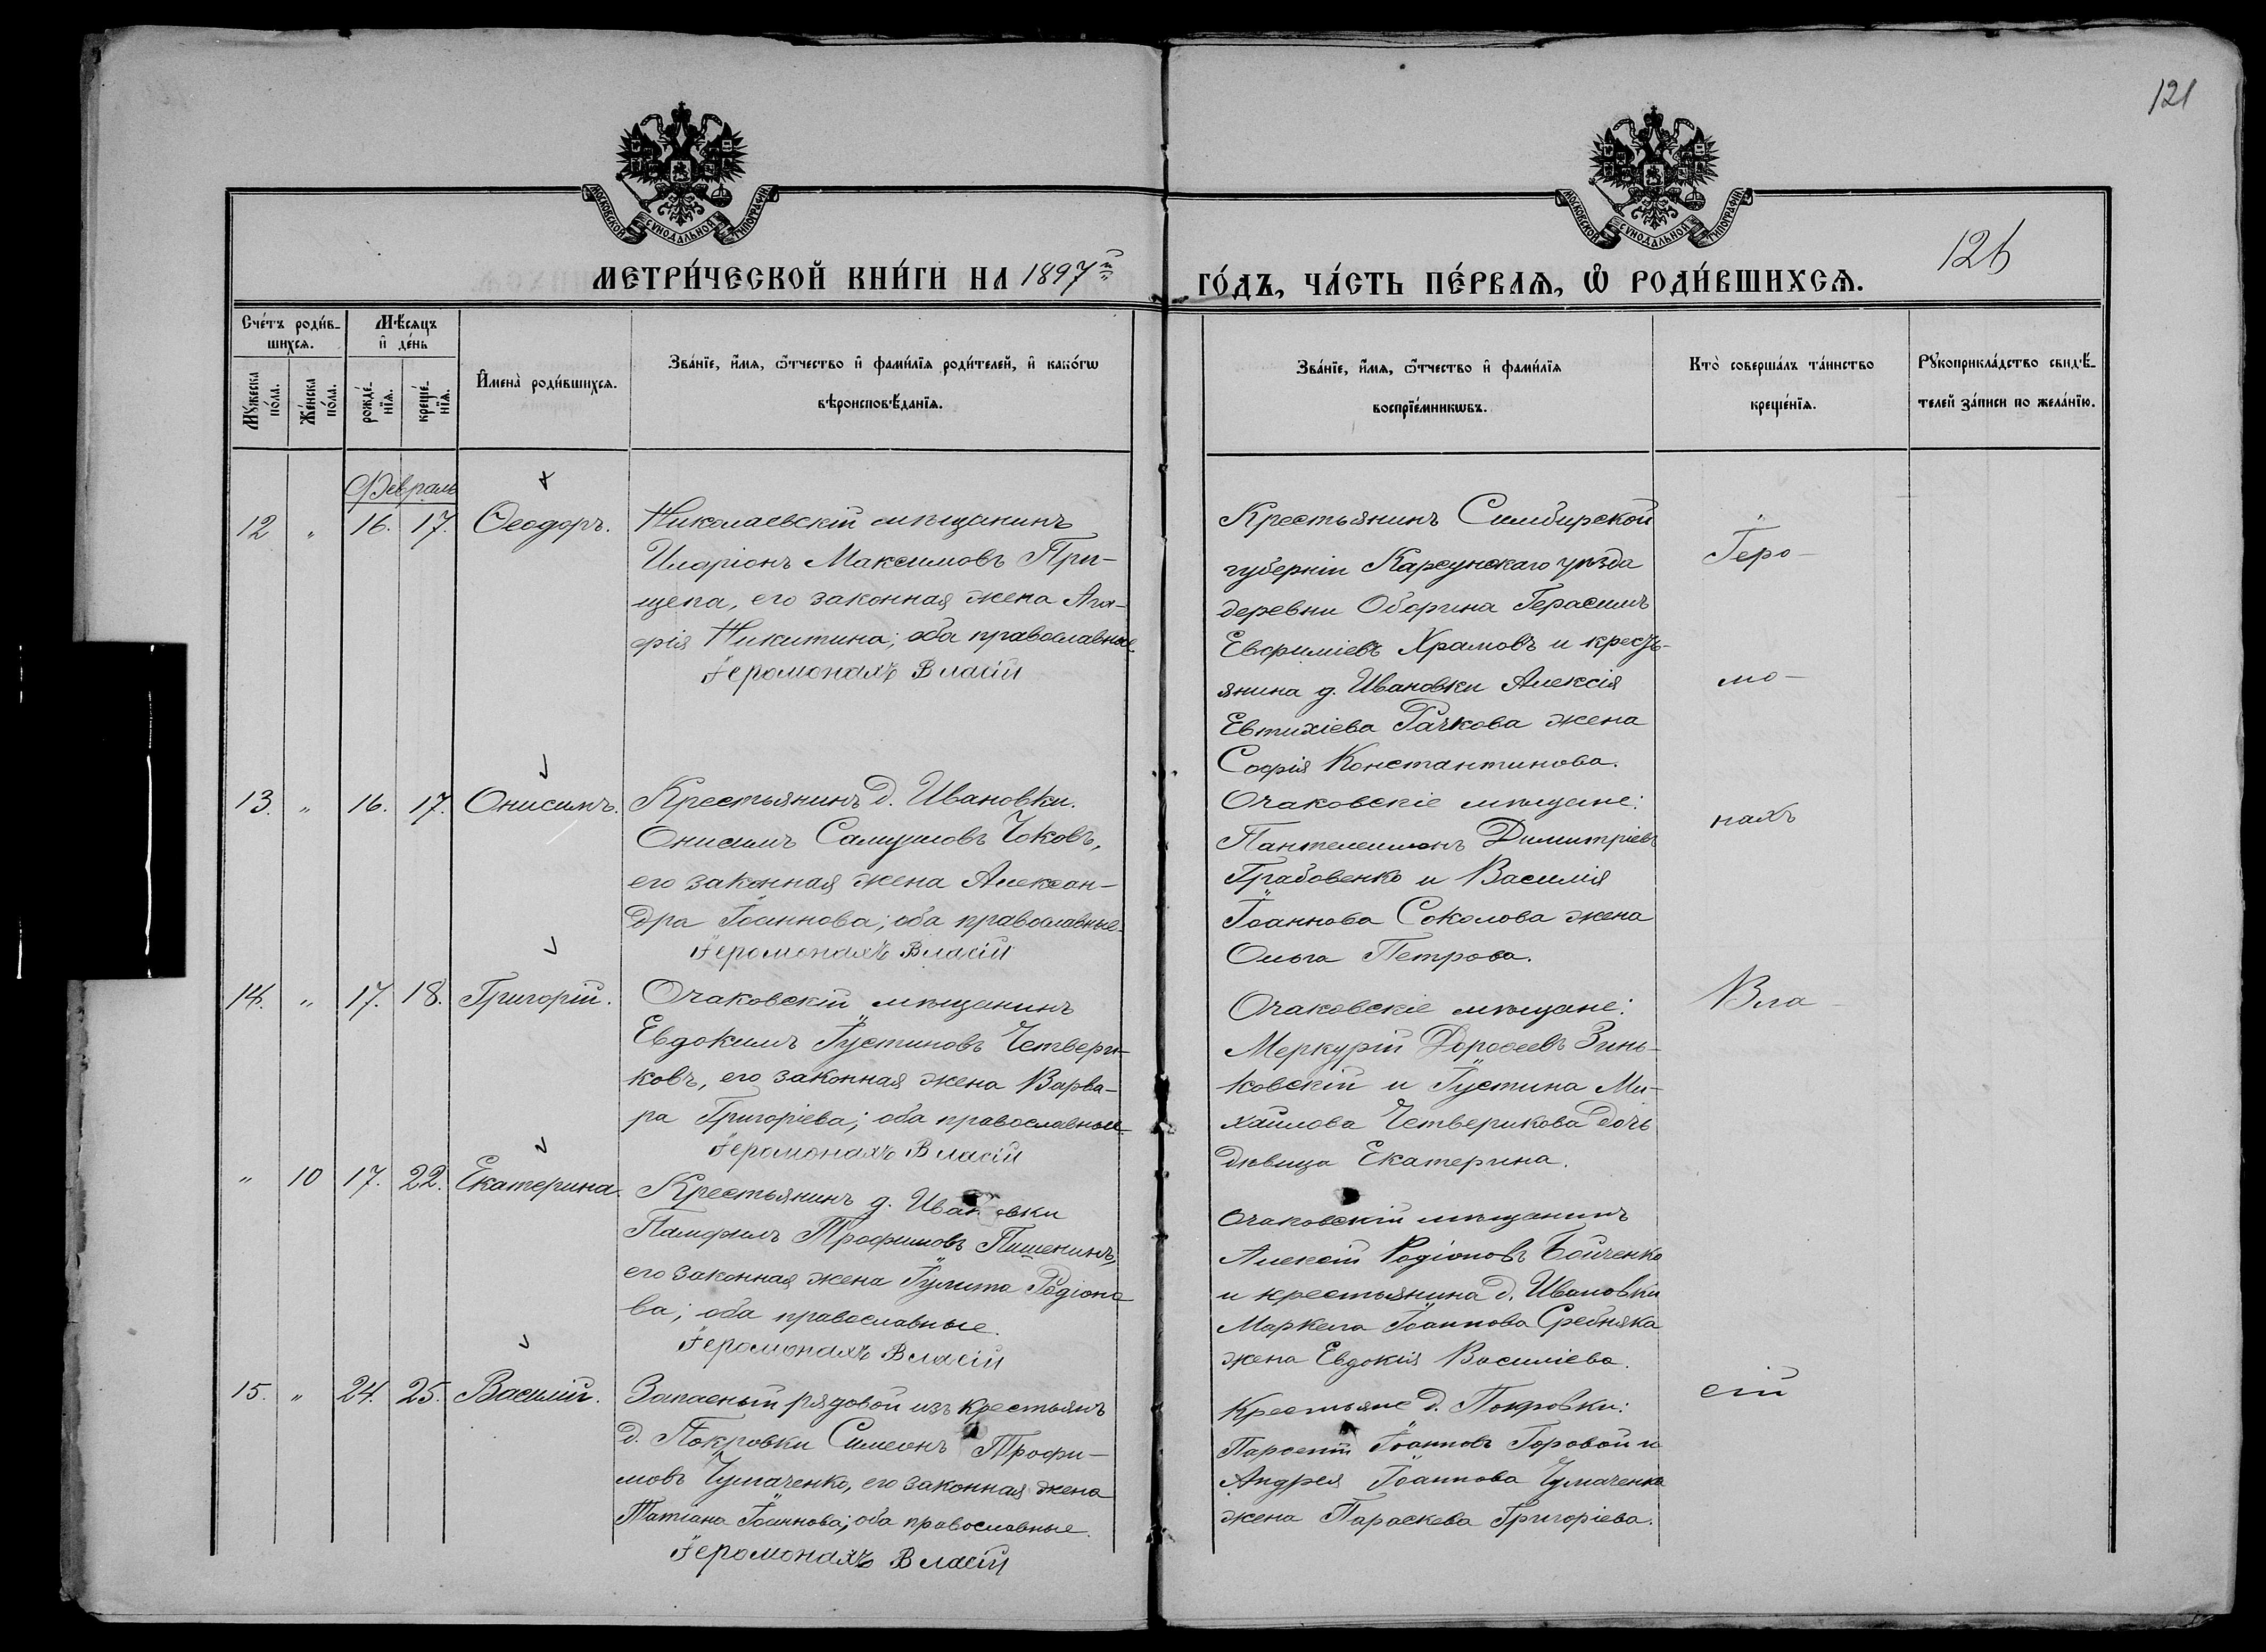 121
МОСКОВСКОЙ СѴНОДАЛЬНОЙ ТИПОГРАФІИ
МОСКОВСКОЙ СѴНОДАЛЬНОЙ ТИПОГРАФІИ
126
МЕТРИ́ЧЕСКОЙ КНИ́ГИ НА 1897й
ГО́ДЪ, ЧА́СТЬ ПЕ́РВАѦ, Ѡ҆ РОДИ́ВШИХСѦ.
Сче́тъ роди́в-
шихсѧ.
Мꙋ́жеска
по́ла.
Же́нска
по́ла.
Мѣ́сѧцъ
и҆ де́нь
рожде́-
нїѧ.
креще́-
нїѧ.
И҆мена̀ роди́вшихсѧ.
Зва́нїе, и҆́мѧ, ѻ҆́тчество и҆ фами́лїѧ роди́телей, и҆ како́гѡ
вѣроисповѣ́данїѧ.
Зва́нїе, и҆́мѧ, ѻ҆́тчество и҆ фами́лїѧ
воспрїе́мникѡвъ.
Кто̀ соверша́лъ та́инство
креще́нїѧ.
Рꙋкоприкла́дство свидѣ́-
телей за́писи по жела́нїю.
Февраль
12 " 16. 17. Ѳеодоръ.
Николаевскій мѣщанинъ
Иларіонъ Максимовъ При-
щепа, его законная жена Ага-
фія Никитина; оба православные
Іеромонахъ Власій
Крестьянинъ Симбирской
губерніи Карсунскаго уѣзда
деревни Оборина Герасимъ
Евфиміевъ Храмовъ и кресть-
янина д. Ивановки Алексія
Евтихіева Рачкова жена
Софія Константинова.
Іеро-
мо-
13. " 16. 17. Онисимъ.
Крестьянинъ д. Ивановки.
Онисимъ Самуиловъ Чоковъ,
его законная жена Алексан-
дра Іоаннова; оба православные.
Іеромонахъ Власій
Очаковскіе мѣщане:
Пантелеимонъ Димитріевъ
Грабовенко и Василія
Іоаннова Соколова жена
Ольга Петрова.
нахъ
14. " 17. 18. Григорій.
Очаковскій мѣщанинъ
Евдокимъ Іустиновъ Четвери-
ковъ, его законная жена Варва-
ра Григоріева; оба православные.
Іеромонахъ Власій
Очаковскіе мѣщане:
Меркурій Дороѳеевъ Зинь-
ковскій и Іустина Ми-
хаилова Четверикова дочь
дѣвица Екатерина.
Вла
" 10 17. 22. Екатерина.
Крестьянинъ д. Ивановки
Памфилъ Трофимовъ Пшенинъ,
его законная жена Іулита Родіоно
ва; оба православные.
Іеромонахъ Власій
Очаковскій мѣщанинъ
Алексій Родіоновъ Бойченко
и крестьянина д. Ивановки
Маркела Іоаннова Сребняка
жена Евдокія Василіева.
15. " 24. 25. Василій.
Запасный рядовой изъ крестьянъ
д. Покровки Симеонъ Трофи-
мовъ Чумаченко, его законная жена
Татіана Іоаннова; оба православные.
Іеромонахъ Власій
Крестьяне д. Покровки:
Парѳеній Іоанновъ Горовой и
Андрея Іоаннова Чумаченка
жена Параскева Григоріева.
сій